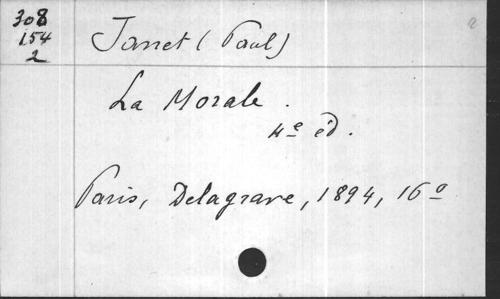 308
154
2
Janet (Paul)
La Morale.
4e éd.
Paris, Delagrave, 1894, 16o.